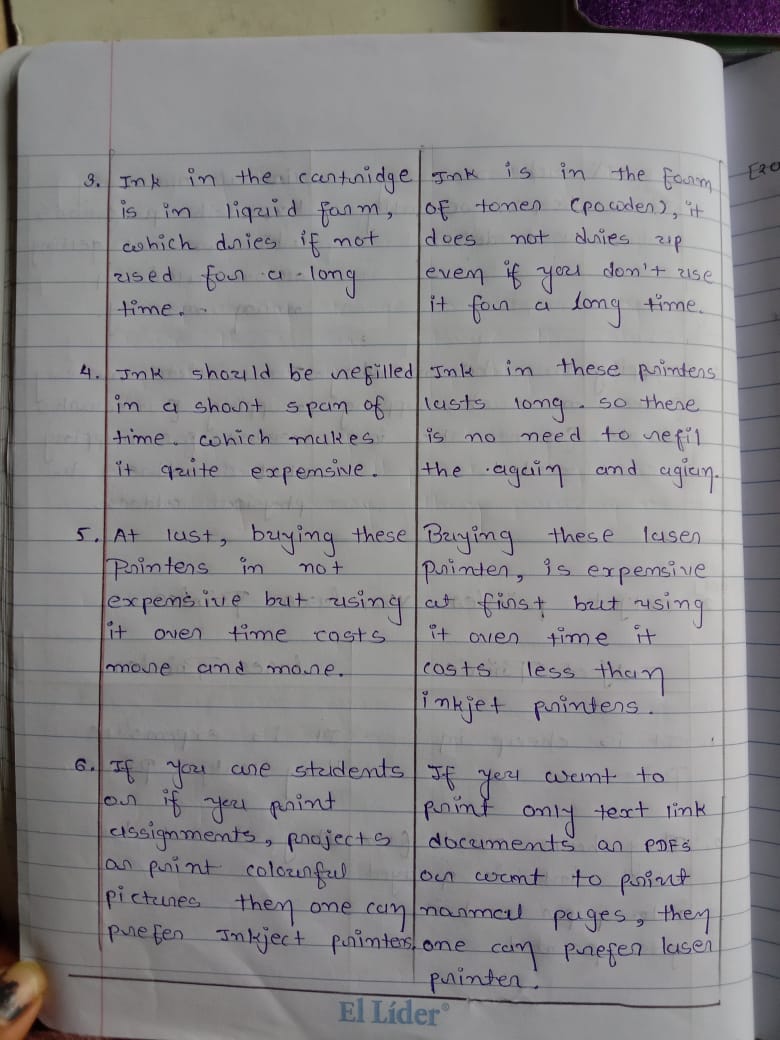 3. Ink in the cartridge
is in liquid form,
which dries if not
used for a long
time.
Ink is in the form
of toner (powder), it
does not dries up
even if you don't use
it for a long time.
4. Ink should be refilled
in a short span of
time. which makes
it quite expensive.
Ink in these printers
lasts long. so there
is no need to refil
the again and agian.
5. At last, buying these
Printers in not
expensive but using
it over time costs
more and more.
Buying these laser
printer, is expensive
at first but using
it over time it
costs less than
inkjet printers.
6. If you are students
or if you print
assignments, projects
or print colourful
pictures then one can
prefer Inkject printers.
If you want to
print only text link
documents or PDFs
or want to print
normal pages, then
one can prefer laser
printer.
El Líder®